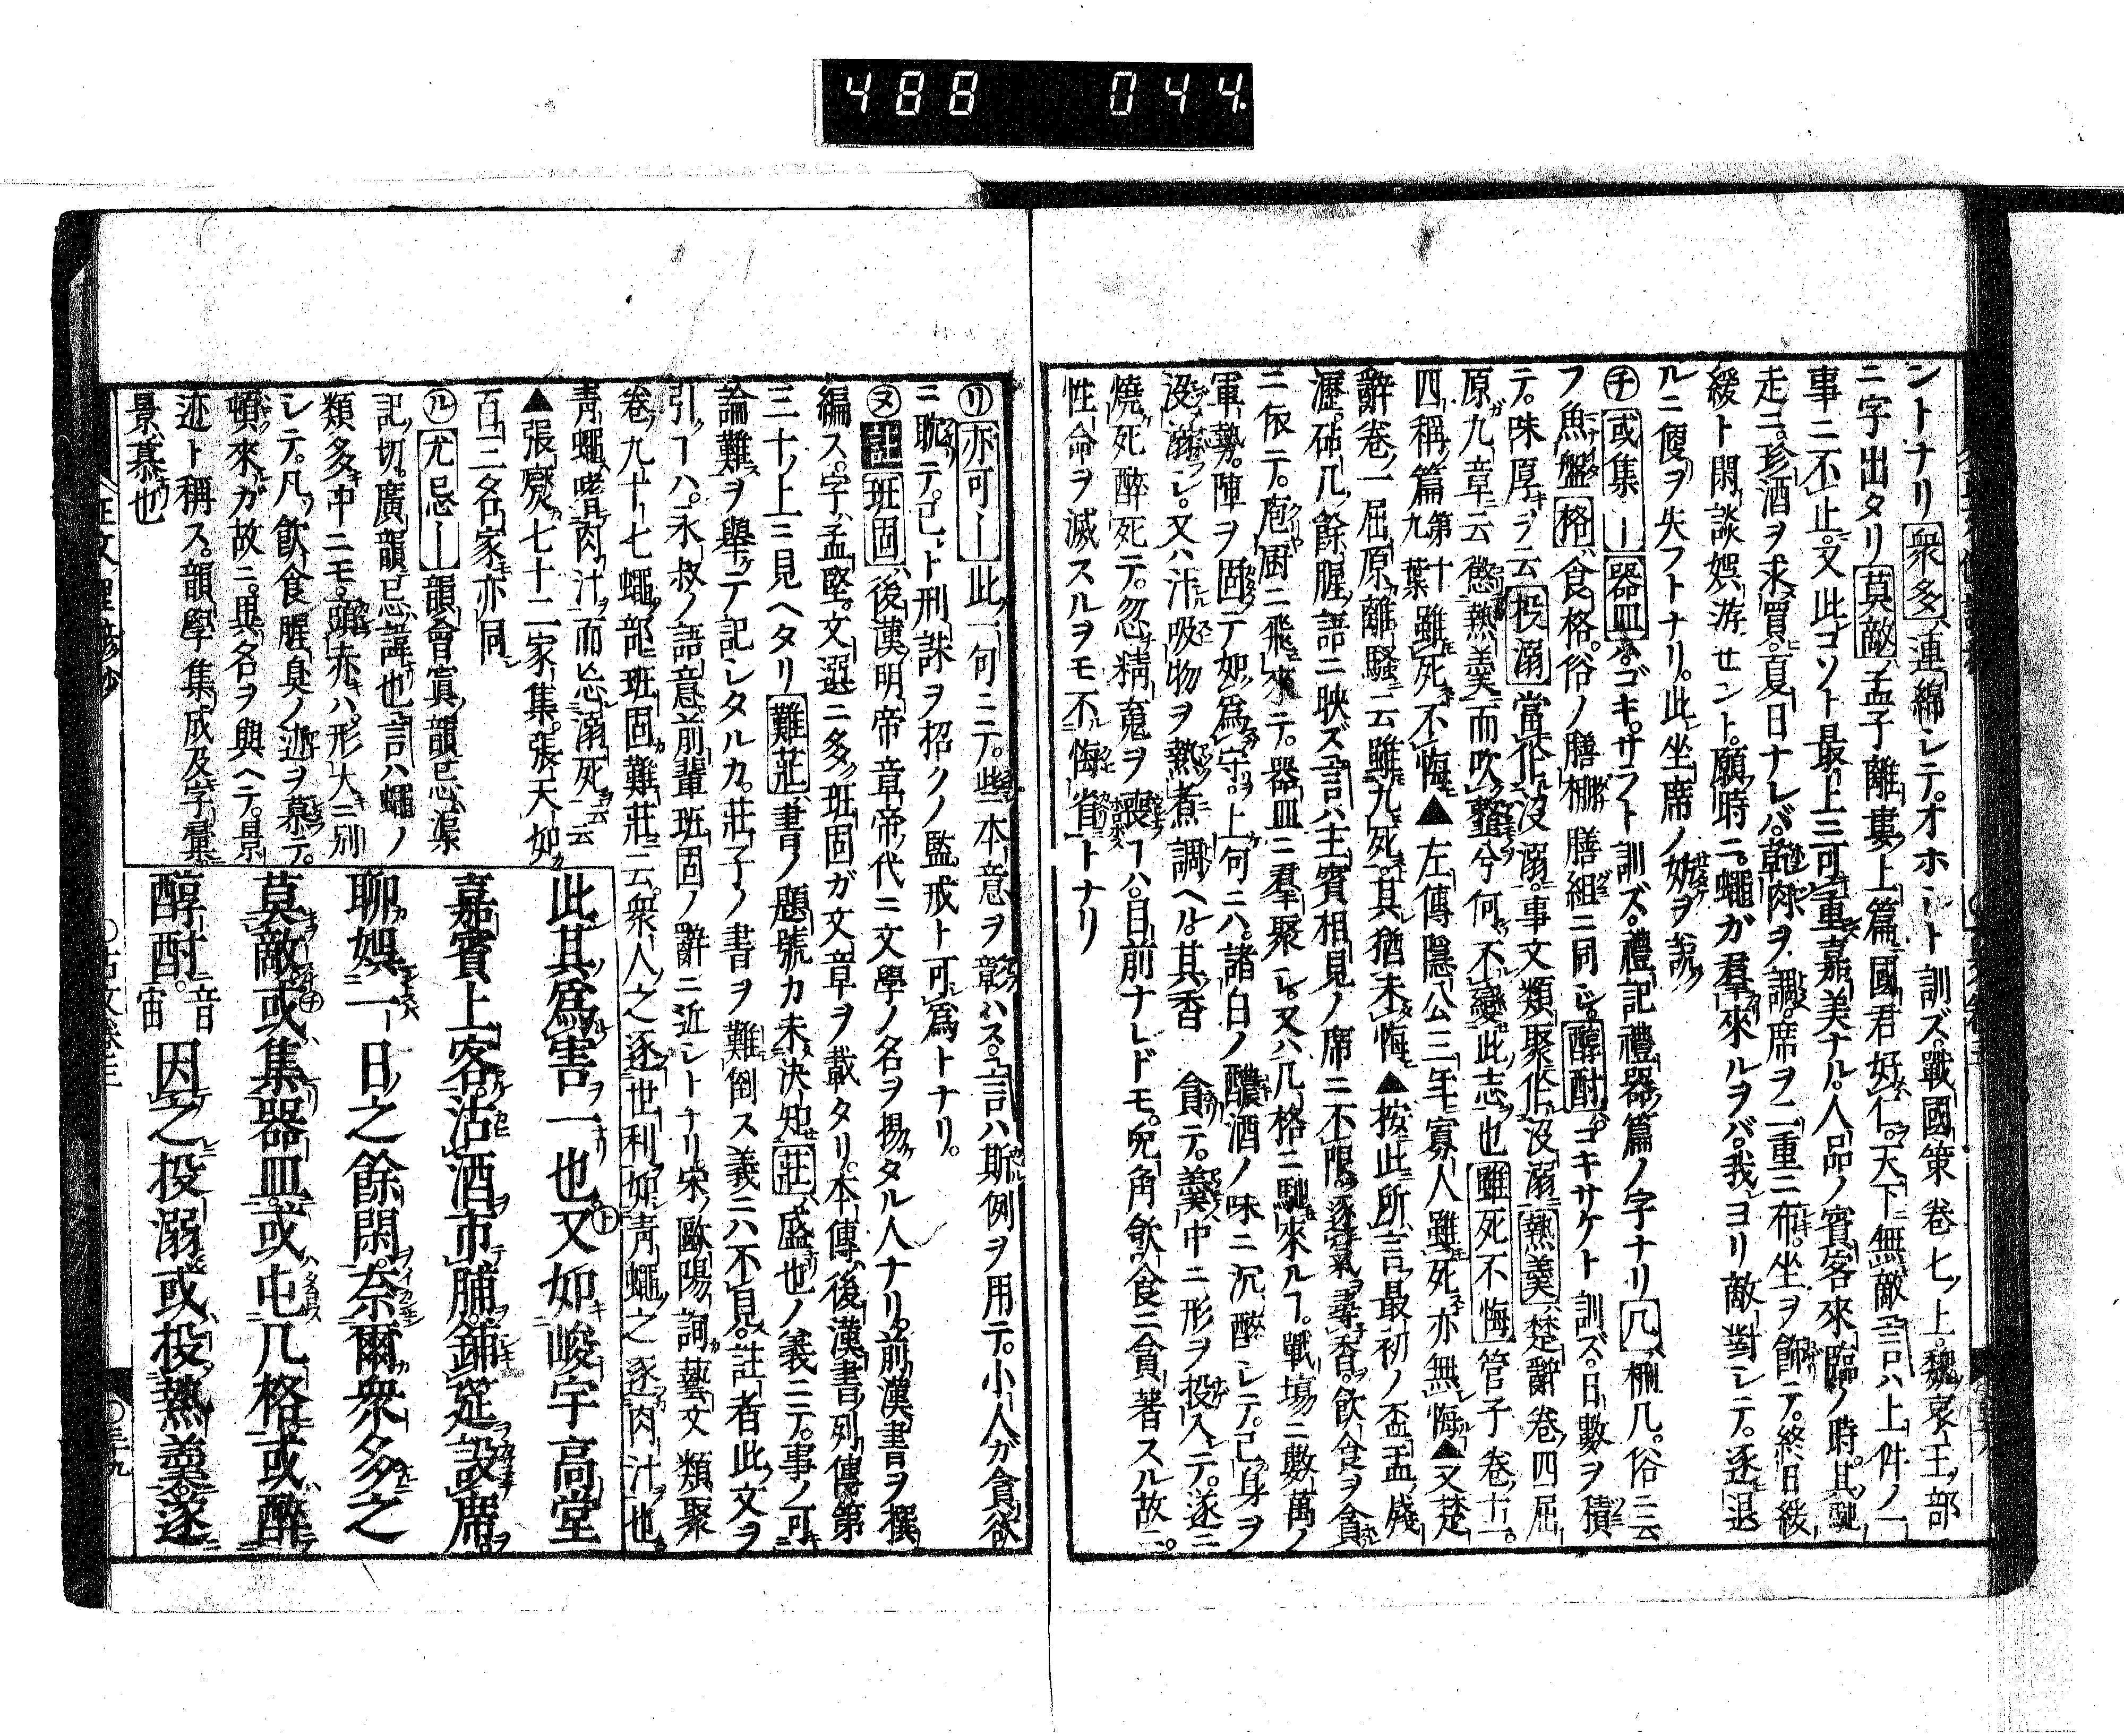 488 044.
ントナリ衆多連綿シテオホシト訓ズ戰國策卷七ノ上魏哀王ノ部
ニ字出タリ莫敵孟子離婁上篇國君好仁天下無敵言ハ上件ノ一
事ニ不止又此コソト最上ニ可重嘉美ナル人品ノ賓客來臨ノ時其馳
走ニ珍酒ヲ求買夏日ナレバ乾肉ヲ調席ヲ二重ニ布坐ヲ飾テ終日緩
緩ト閑談娯游セント願時ニ蠅ガ群來ルヲバ我ヨリ敵對シテ逐退
ルニ便ヲ失フトナリ此坐席ノ妨ヲ說
チ或集ー器皿ゴキサラト訓ズ禮記禮器篇ノ字ナリ几棚几俗ニ云
フ魚盤格食格俗ノ膳棚膳組ニ同ジ醇酎コキサケト訓ズ日數ヲ積
テ味厚ヲ云投溺當作沒溺事文類聚作沒溺熱羹楚辭卷四屈
原九章云懲熱羹而吹韲兮何不變此志也雖死不悔管子卷十一
四稱篇第十九葉雖死不悔▲左傳隱公三年寡人雖死亦無悔▲又楚
辭卷一屈原離騷云雖九死其猶未悔▲按此所言最初ノ盃盂殘
瀝砧几餘腥ノ語ニ映ズ言ハ主賓相見ノ席ニ不限逐氣尋香飲食ヲ貪
ニ依テ庖厨ニ飛來テ器皿ニ群聚シ又ハ几格ニ馳來ルヿ戰場ニ數萬ノ
軍勢陣ヲ固テ如爲守上句ニハ諸白ノ醲酒ノ味ニ沉醉シテ己身ヲ
沒溺シ又ハ汁吸物ヲ熱煮調ヘル其香貪テ羹中ニ形ヲ投入テ遂ニ
燒死醉死テ忽精魂ヲ喪ヿハ目前ナレドモ兇角飲食ニ貪著スル故ニ
性命ヲ滅スルヲモ不悔省トナリ
リ亦可ー此一句ニテ些本意ヲ彰ハス言ハ斯例ヲ用テ小人ガ貪欲
ニ耽テ己ト刑誅ヲ招クノ監戒ト可爲トナリ
ヌ註班固後漢明帝章帝代ニ文學ノ名ヲ揚タル人ナリ前漢書ヲ撰
編ス字孟堅文選ニ多班固ガ文章ヲ載タリ本傳後漢書列傳第
三十上ニ見ヘタリ難莊書ノ題號カ未決知莊盛也ノ義ニテ事ノ可
論難ヲ擧テ記シタルカ莊子ノ書ヲ難倒ス義ニハ不見註者此文ヲ
引ヿハ永叔ノ語意前輩班固ノ辭ニ近シトナリ宋歐陽詢藝文類聚
卷九十七蠅部班固難莊云衆人之逐世利如靑蠅之逐肉汁也
靑蠅嗜肉汁而忘溺死云云
▲張燮七十二家集張天如
百三名家亦同
ル尤忌ー韻會寘韻忌渠
記切廣韻忌諱也言ハ蠅ノ
類多中ニモ頭赤ハ形大ニ別
シテ凡飲食腥臭ノ迹ヲ慕テ
頓來ガ故ニ異名ヲ與ヘテ景
迹ト稱ス韻學集成及字彙
景慕也
此其爲害一也又如峻宇高堂
嘉賓上客沽酒市脯鋪筵設席
聊娯一日之餘閑奈爾衆多之
莫敵或集器皿或屯几格或醉
醇酎音宙因之投溺或投熱羹遂